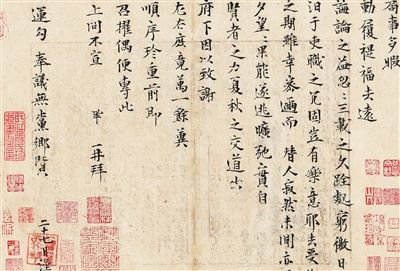 局事多暇
動履禔福去遠
誨論之益忽忽三載之久跧處窮徼日
汩于吏職之冗固豈有樂意耶去受
之期雖幸密邇而替人寂然未聞亦
夕望望果能遂逃曠弛實自
賢者之力夏秋之交道出
府下因以致謝
左右庶竟萬一餘冀
順序珍重前即
召擢偶便專此
上問不宣 鞏 再拜
運勾奉議無黨鄉賢
二十七日謹